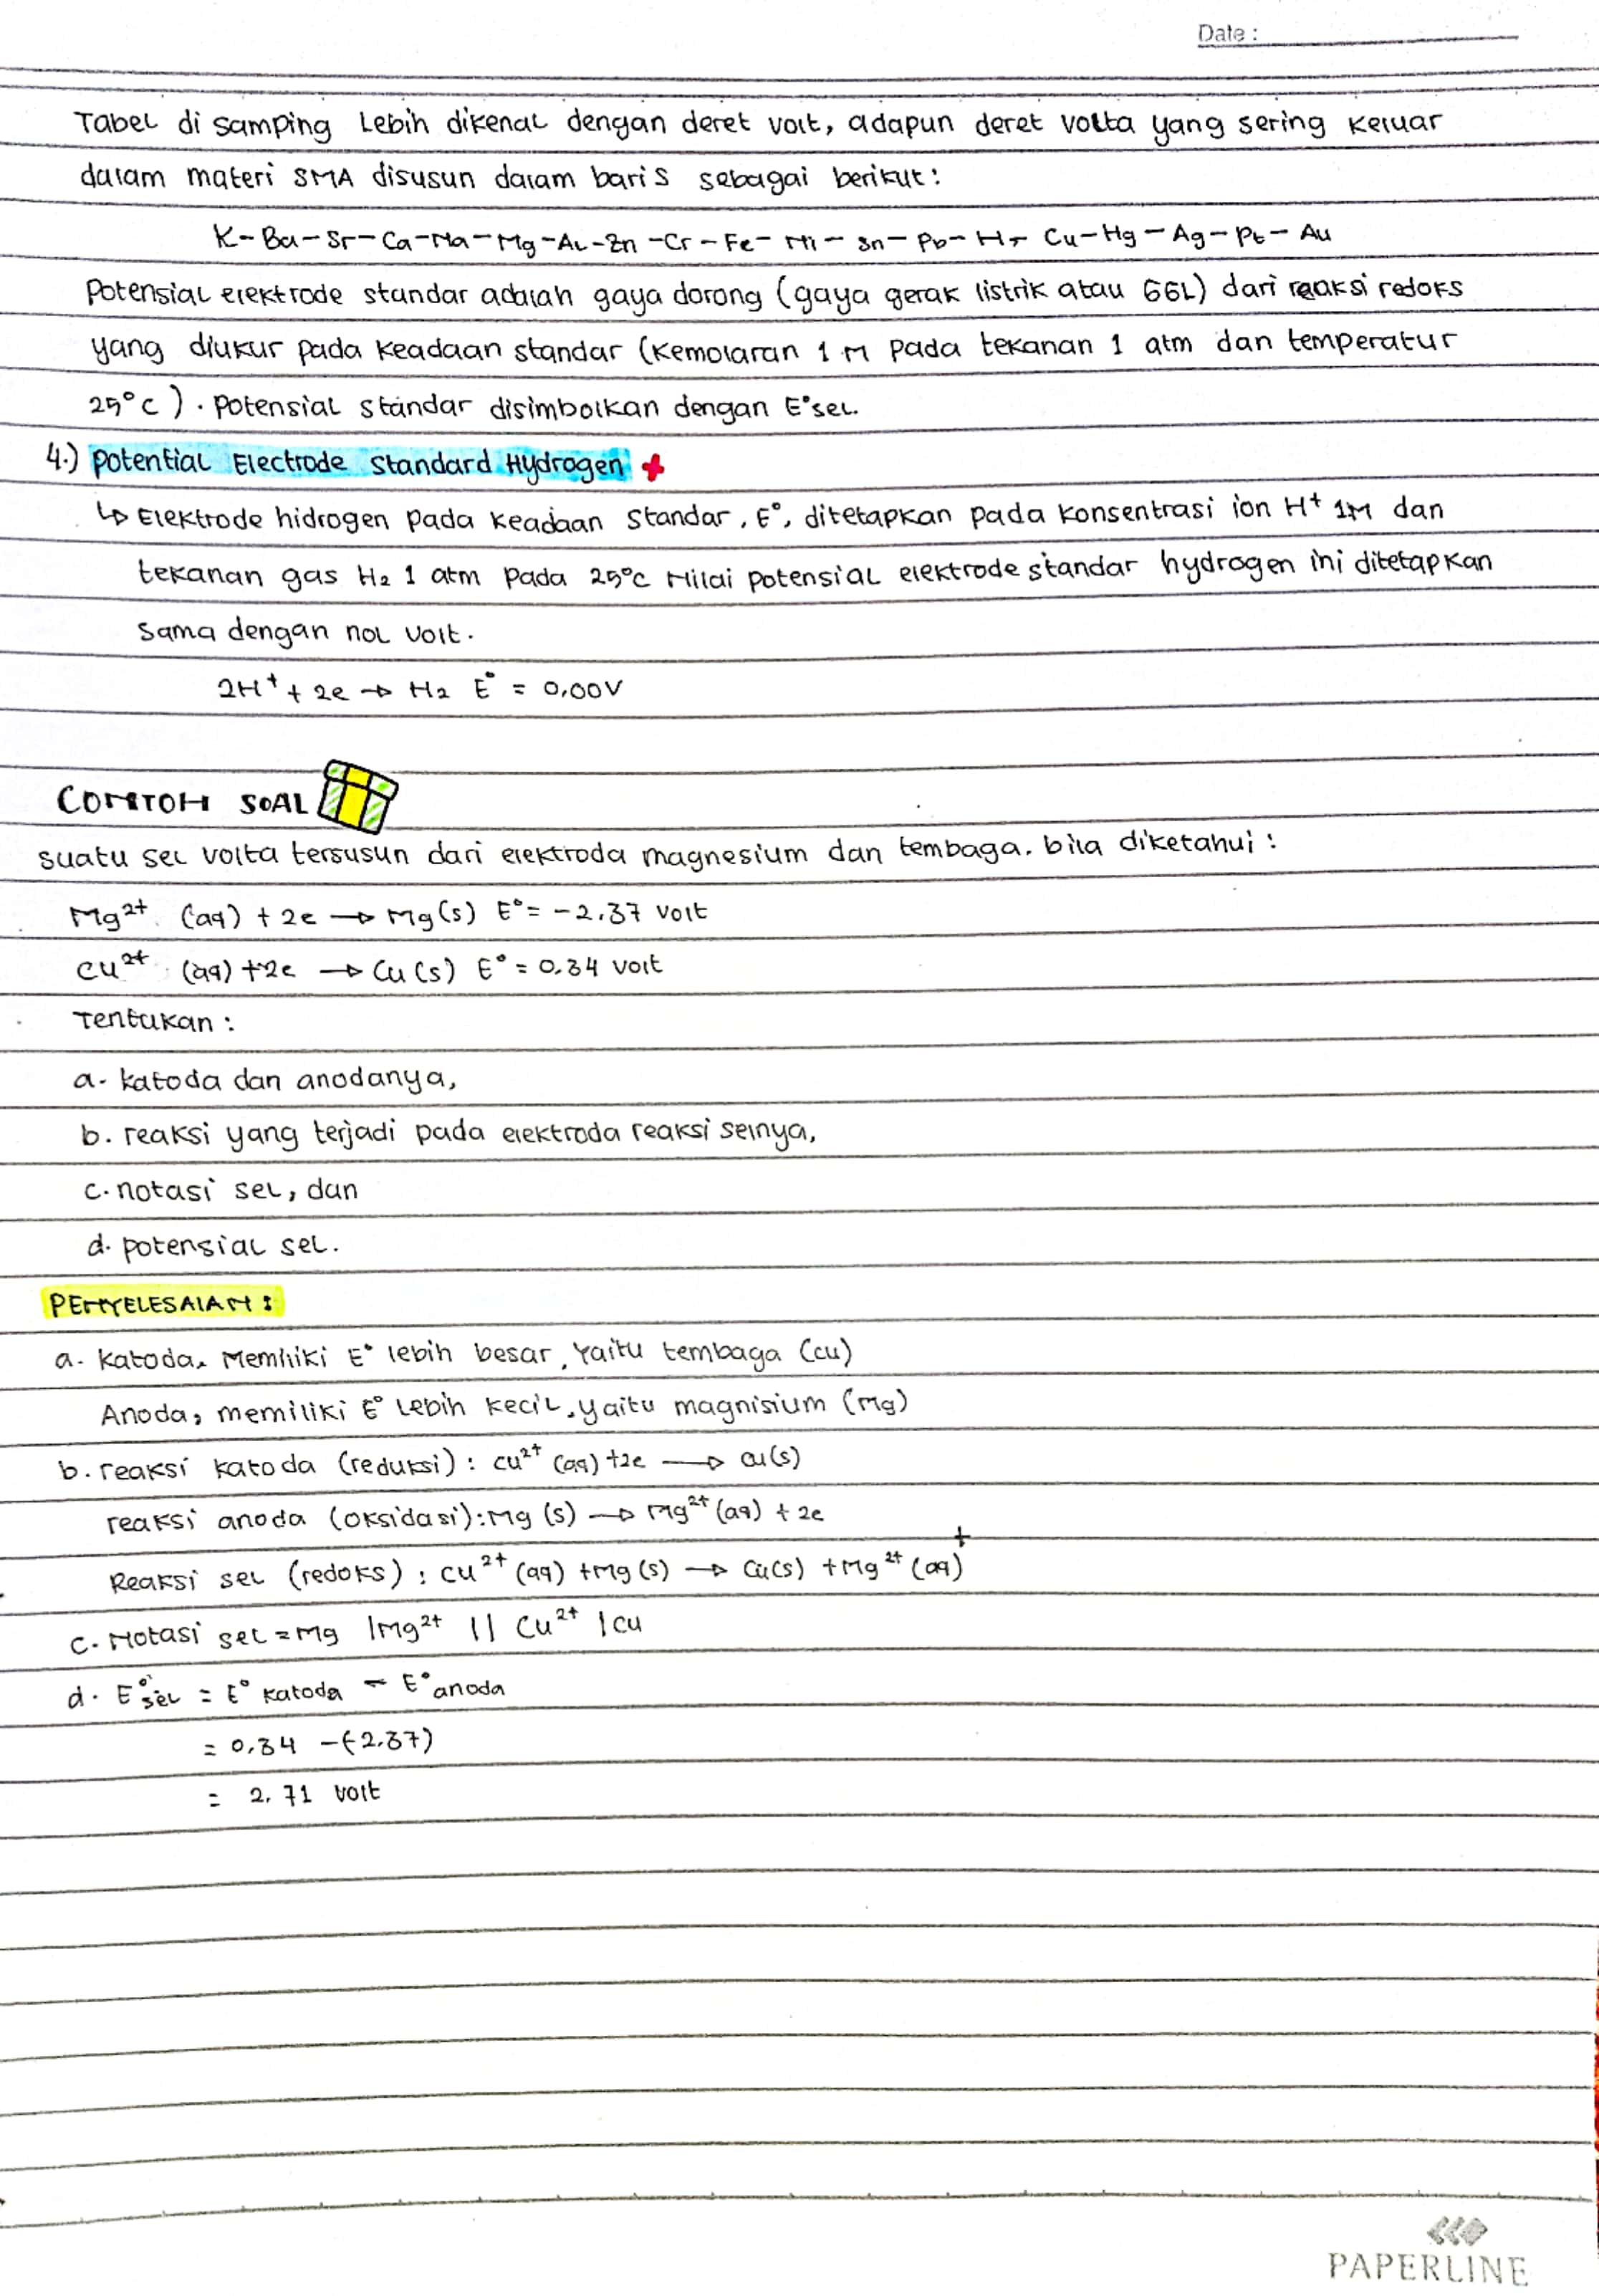 Date :
Tabel di samping Lebih dikenal dengan deret volt, adapun deret volta yang sering keluar
dalam materi SMA disusun dalam baris sebagai berikut:
K-Ba-Sr-Ca-Na-Mg-Al-Zn-Cr-Fe-Ni-Sn-Pb-H-Cu-Hg-Ag-Pt-Au
Potensial elektrode standar adalah gaya dorong (gaya gerak listrik atau GGL) dari reaksi redoks
yang diukur pada keadaan standar (kemolaran 1 M pada tekanan 1 atm dan temperatur
25°C). Potensial standar disimbolkan dengan E°sel.
4.) Potential Electrode Standard Hydrogen +
↳ Elektrode hidrogen pada keadaan standar, E°, ditetapkan pada konsentrasi ion H⁺ 1M dan
tekanan gas H₂ 1 atm pada 25°C Nilai potensial elektrode standar hydrogen ini ditetapkan
sama dengan nol volt.
2H⁺ + 2e → H₂ E° = 0,00V
CONTOH SOAL
suatu sel volta tersusun dari elektroda magnesium dan tembaga. bila diketahui :
Mg²⁺ (aq) + 2e → Mg(s) E° = -2,37 volt
Cu²⁺ (aq) +2e → Cu(s) E° = 0,34 volt
Tentukan :
a. katoda dan anodanya,
b. reaksi yang terjadi pada elektroda reaksi selnya,
c. notasi sel, dan
d. potensial sel.
PENYELESAIAN :
a. katoda, Memiliki E° lebih besar, Yaitu tembaga (Cu)
Anoda, memiliki E° Lebih kecil, yaitu magnisium (Mg)
b. reaksi katoda (reduksi) : Cu²⁺ (aq) +2e → Cu(s)
reaksi anoda (oksidasi) : Mg (s) → Mg²⁺ (aq) + 2e
+
Reaksi sel (redoks) : Cu²⁺ (aq) +Mg(s) → Cu(s) +Mg²⁺ (aq)
c. Notasi sel = Mg |Mg²⁺ || Cu²⁺ |Cu
d. E°sel = E° katoda - E° anoda
= 0,34 -(-2,37)
= 2,71 volt
PAPERLINE